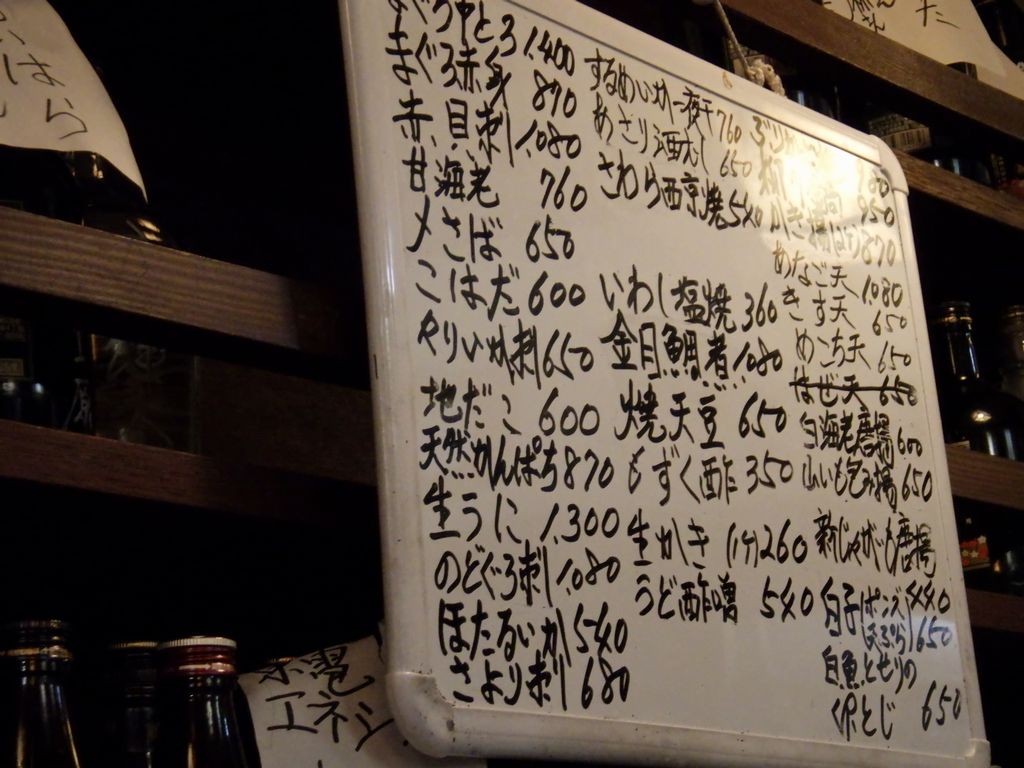 まぐろ中とろ 1,400
まぐろ赤身 870
赤貝刺 1,080
甘海老 760
〆さば 650
こはだ 600
やりいか刺 650
地だこ 600
天然かんぱち 870
生うに 1,300
のどぐろ刺 1,080
ほたるいか 540
さより刺 680
するめいか一夜干 760
あさり酒むし 650
さわら西京焼 540
いわし塩焼 360
金目鯛煮 1,080
焼天豆 650
もずく酢 350
生かき (1ケ) 260
うど酢噌 540
950
かき揚 870
あなご天 1,080
きす天 650
めごち天 650
はぜ天 650
白海老唐揚 600
山いも包み揚 650
新じゃがいも唐揚
440
白子 ポンズ
天ぷら 650
白魚とせりの
とじ 650
エネシ
はら